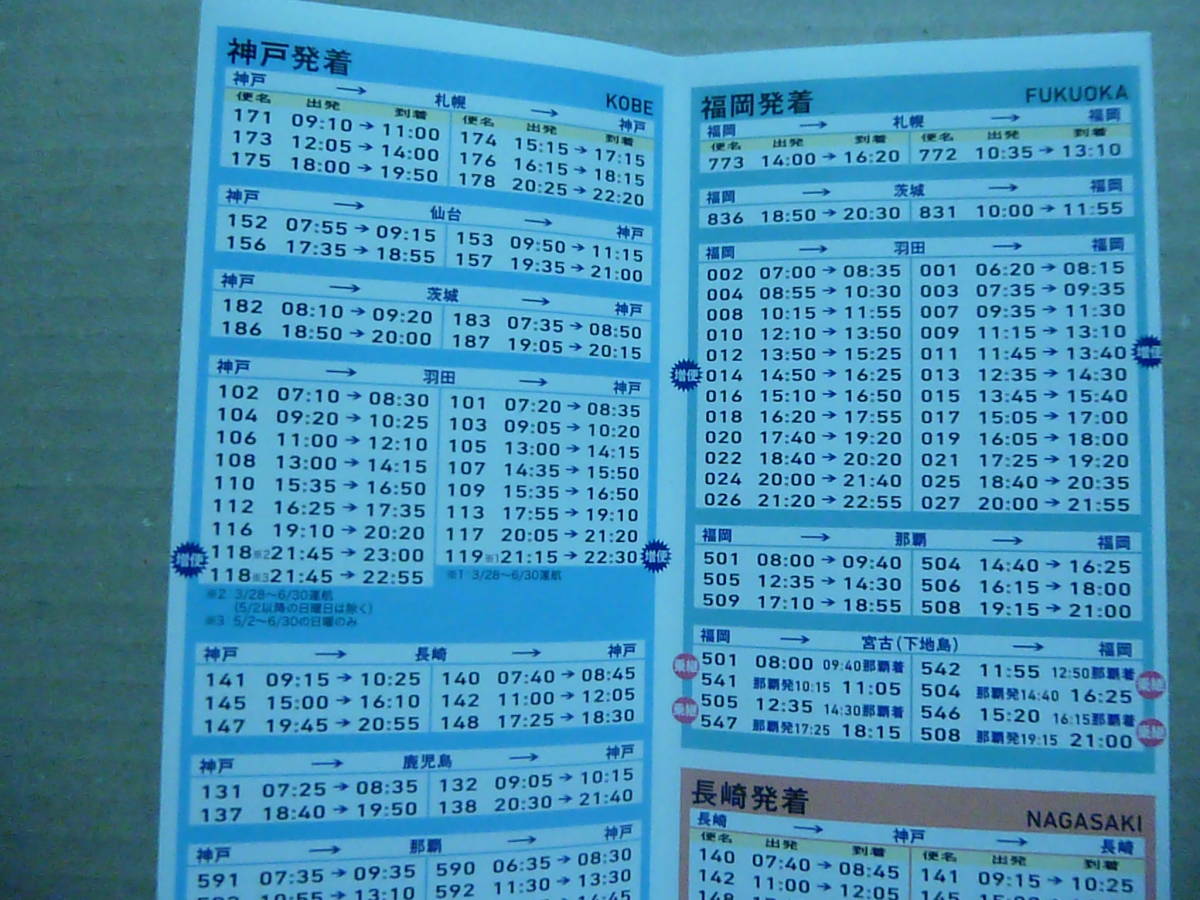 神戸発着 KOBE
神戸 → 札幌 → 神戸
便名 出発 到着 便名 出発 到着
171 09:10→11:00 174 15:15→17:15
173 12:05→14:00 176 16:15→18:15
175 18:00→19:50 178 20:25→22:20
神戸 → 仙台 → 神戸
152 07:55→09:15 153 09:50→11:15
156 17:35→18:55 157 19:35→21:00
神戸 → 茨城 → 神戸
182 08:10→09:20 183 07:35→08:50
186 18:50→20:00 187 19:05→20:15
神戸 → 羽田 → 神戸
102 07:10→08:30 101 07:20→08:35
104 09:20→10:25 103 09:05→10:20
106 11:00→12:10 105 13:00→14:15
108 13:00→14:15 107 14:35→15:50
110 15:35→16:50 109 15:35→16:50
112 16:25→17:35 113 17:55→19:10
116 19:10→20:20 117 20:05→21:20
増便 118※2 21:45→23:00 119※1 21:15→22:30 増便
118※3 21:45→22:55 ※1 3/28~6/30運航
※2 3/28~6/30運航
(5/2以降の日曜日は除く)
※3 5/2~6/30の日曜のみ
神戸 → 長崎 → 神戸
141 09:15→10:25 140 07:40→08:45
145 15:00→16:10 142 11:00→12:05
147 19:45→20:55 148 17:25→18:30
神戸 → 鹿児島 → 神戸
131 07:25→08:35 132 09:05→10:15
137 18:40→19:50 138 20:30→21:40
神戸 → 那覇 → 神戸
591 07:35→09:35 590 06:35→08:30
10:55→13:10 592 11:30→13:30
福岡発着 FUKUOKA
福岡 → 札幌 → 福岡
便名 出発 到着 便名 出発 到着
773 14:00→16:20 772 10:35→13:10
福岡 → 茨城 → 福岡
836 18:50→20:30 831 10:00→11:55
福岡 → 羽田 → 福岡
002 07:00→08:35 001 06:20→08:15
004 08:55→10:30 003 07:35→09:35
008 10:15→11:55 007 09:35→11:30
010 12:10→13:50 009 11:15→13:10
012 13:50→15:25 011 11:45→13:40 増便
増便 014 14:50→16:25 013 12:35→14:30
016 15:10→16:50 015 13:45→15:40
018 16:20→17:55 017 15:05→17:00
020 17:40→19:20 019 16:05→18:00
022 18:40→20:20 021 17:25→19:20
024 20:00→21:40 025 18:40→20:35
026 21:20→22:55 027 20:00→21:55
福岡 → 那覇 → 福岡
501 08:00→09:40 504 14:40→16:25
505 12:35→14:30 506 16:15→18:00
509 17:10→18:55 508 19:15→21:00
福岡 → 宮古(下地島) → 福岡
乗継 501 08:00 09:40那覇着 542 11:55 12:50那覇着 乗継
541 那覇発10:15 11:05 504 那覇発14:40 16:25
乗継 505 12:35 14:30那覇着 546 15:20 16:15那覇着 乗継
547 那覇発17:25 18:15 508 那覇発19:15 21:00
長崎発着 NAGASAKI
長崎 → 神戸 → 長崎
便名 出発 到着 便名 出発 到着
140 07:40→08:45 141 09:15→10:25
142 11:00→12:05